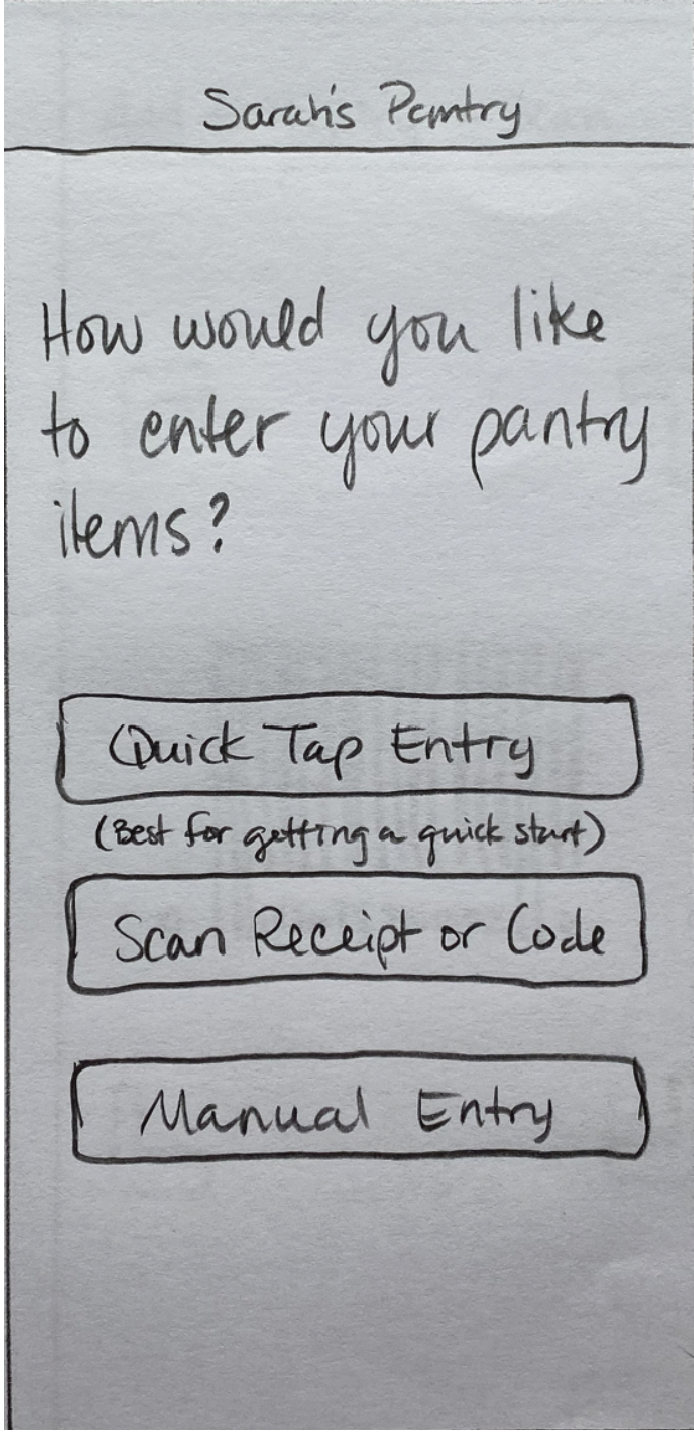 Sarah's Pantry
How would you like
to enter your pantry
items?
Quick Tap Entry
(Best for getting a quick start)
Scan Receipt or Code
Manual Entry